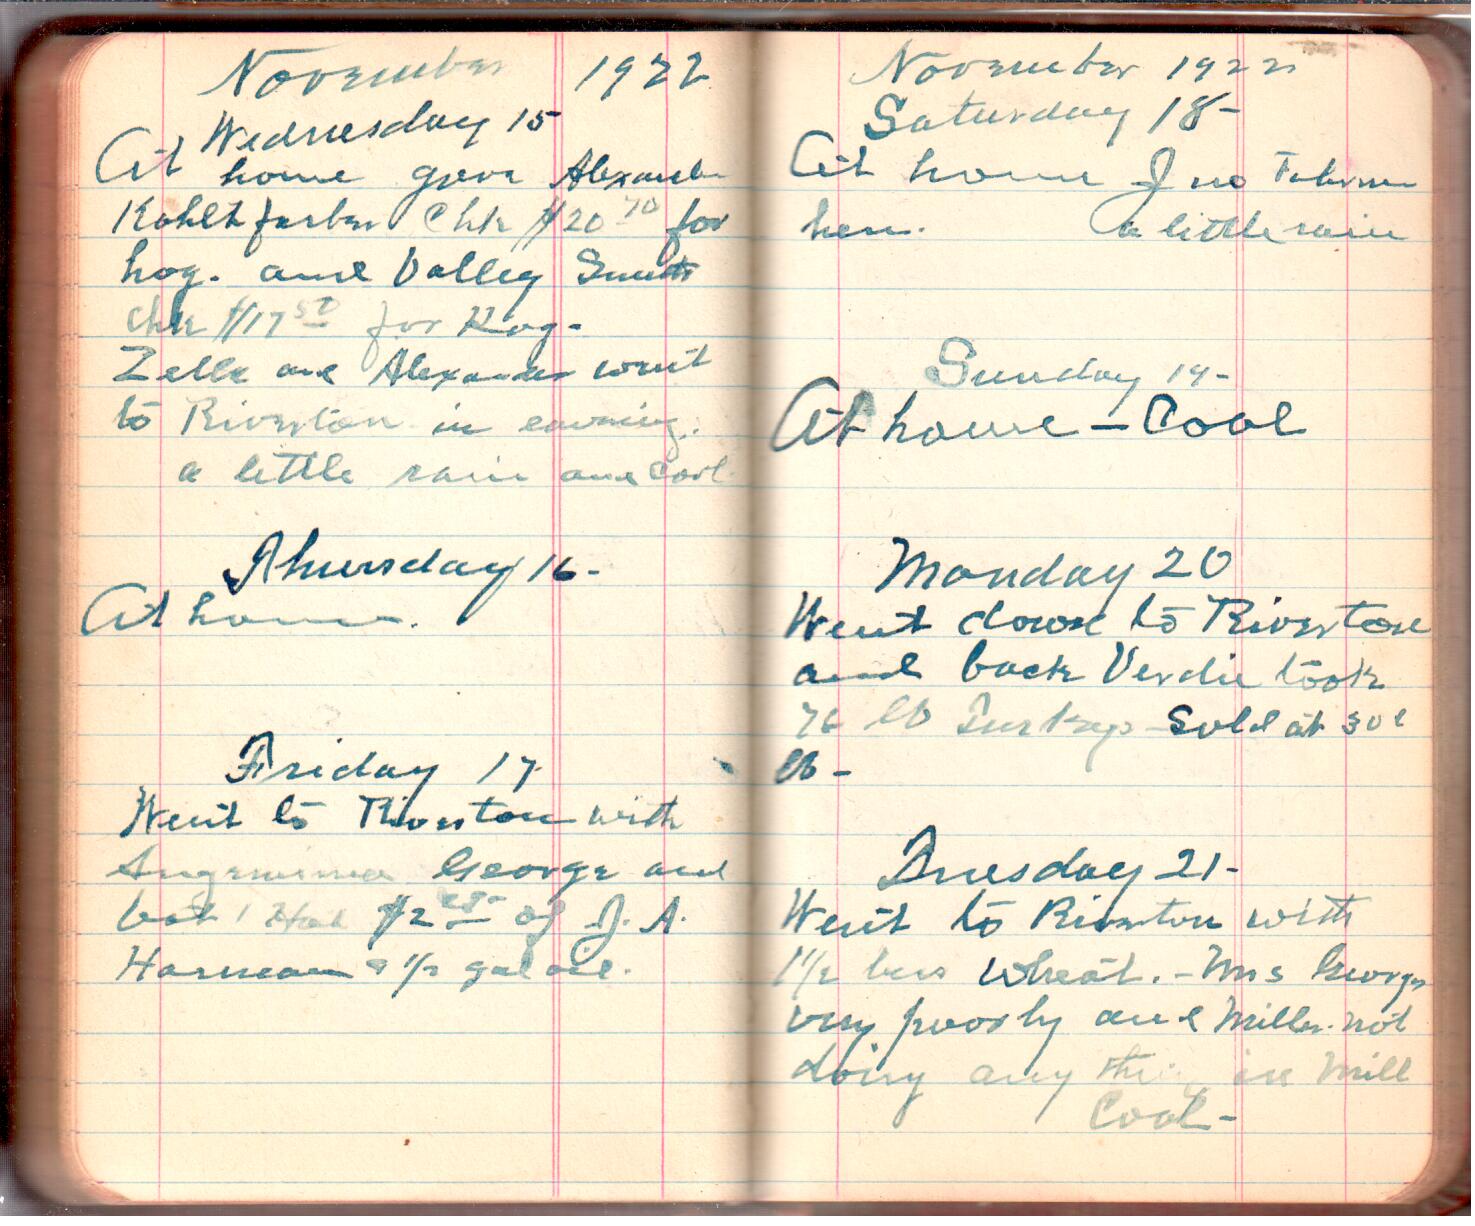 November 1922
Wednesday 15
At home gave Alexander
Kohlt farber Chk $20 70 for
hog. and Valley Smith
Chk $17 50 for Hog-
Zella and Alexander went
to Riverton in evening.
a little rain and Cool
Thursday 16-
At home.
Friday 17
Went to Riverton with
George and
bot 1 Hat $2 of J. A.
Harman & 1/2 gal oil.
November 1922
Saturday 18-
At home Jno
here. a little rain
Sunday 19-
At home - Cool
Monday 20
Went down to Riverton
and back Verdie took
76 lb Turkeys Sold at 30¢
lb-
Tuesday 21-
Went to Riverton with
1 1/2 bus Wheat. - Mrs George
very poorly and Miller not
doing any thing in Mill
Cool-